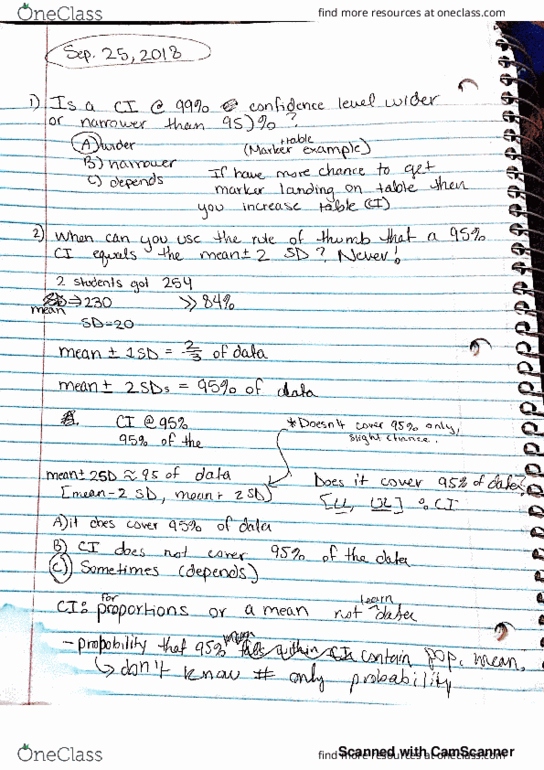 OneClass
find more resources at oneclass.com
Sep. 25, 2018
1) Is a CI @ 99% confidence level wider
or narrower than 95)% ?
A) wider
table
(Marker example)
B) narrower
C) depends
If have more chance to get
marker landing on table then
you increase table (CI)
2) When can you use the rule of thumb that a 95%
CI equals the mean ± 2 SD? Never!
2 students got 254
mean ⇒ 230 >> 84%
SD=20
mean ± 1SD = 2/3 of data
mean ± 2SDs = 95% of data
CI @ 95%
95% of the
*Doesn't cover 95% only,
slight chance.
mean ± 2SD ≈ 95 of data
[mean - 2 SD, mean + 2 SD]
Does it cover 95% of data?
[LL, UL] % CI
A) it does cover 95% of data
B) CI does not cover 95% of the data
C) Sometimes (depends)
CI: for proportions or a mean not learn data
- probability that 95% contain pop. mean.
↳ don't know # only probability
OneClass
find more resources at oneclass.com
Scanned with CamScanner